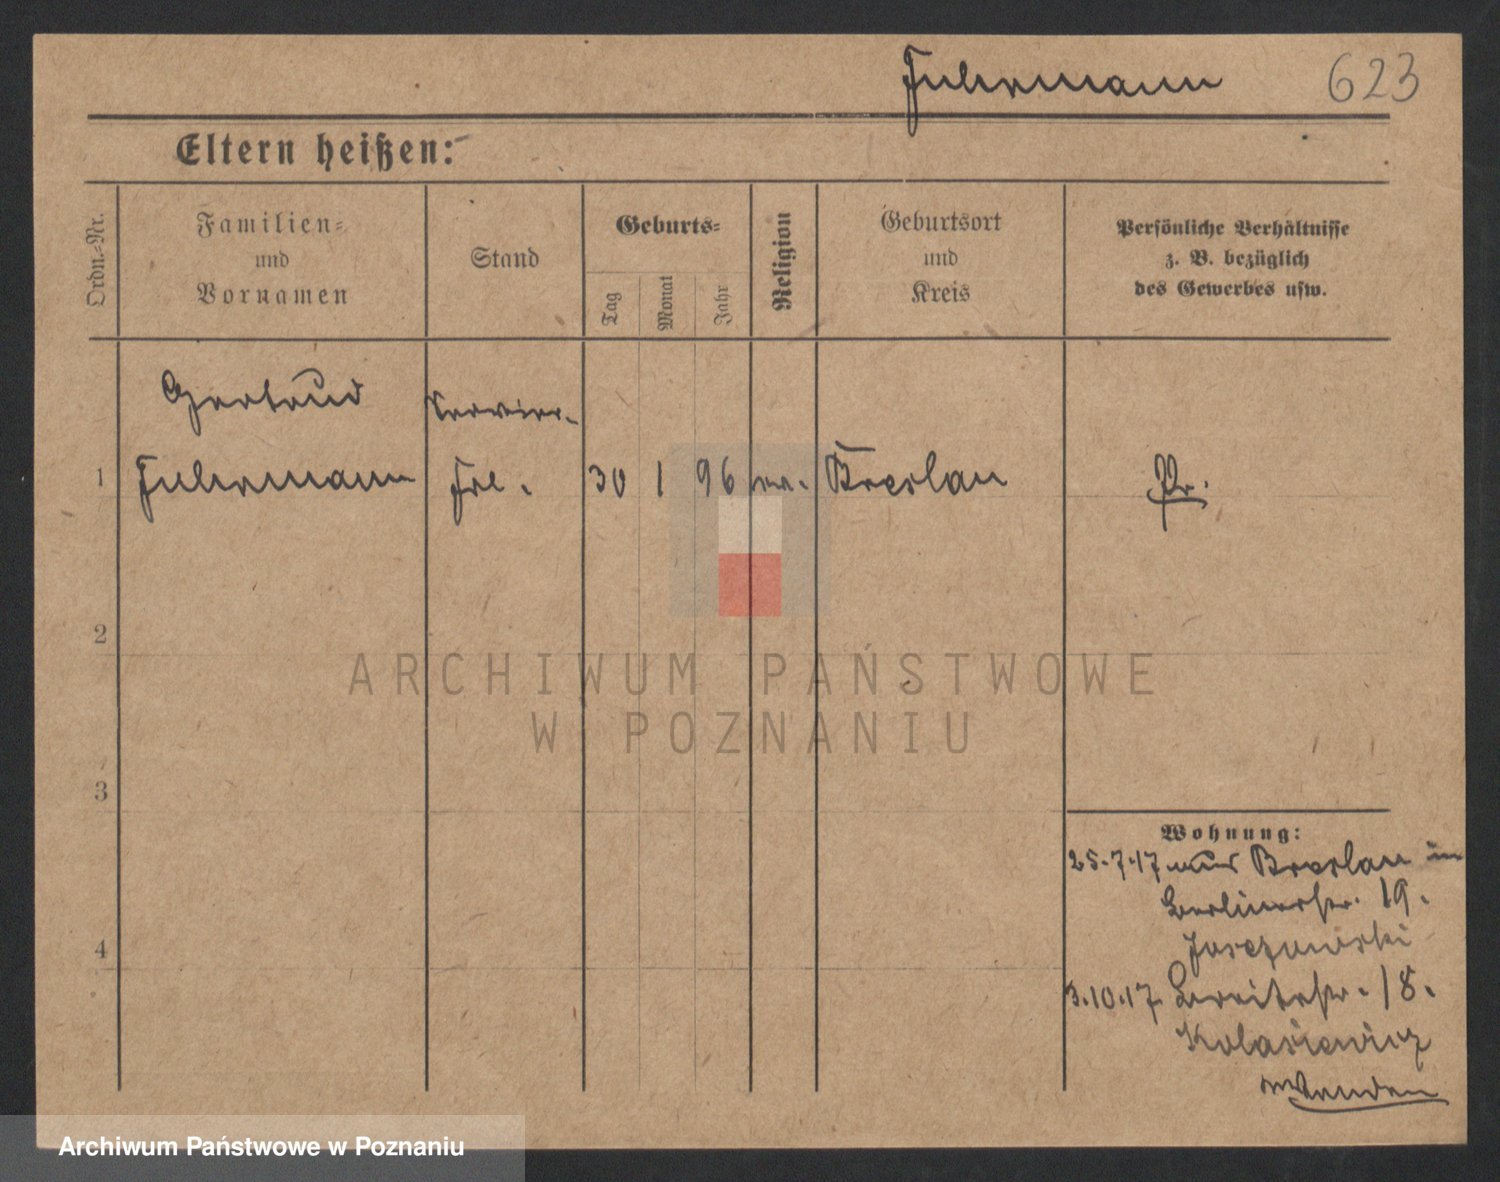 Fuhrmann 623
Eltern heißen:
Ordn.-Nr.
Familien-
und
Vornamen
Stand
Geburts-
Tag
Monat
Jahr
Religion
Geburtsort
und
Kreis
Persönliche Verhältnisse
z. B. bezüglich
des Gewerbes usw.
Gertrud Servier-
1 Fuhrmann Frl. 30 1 96 ev. Breslau Pr.
2
3
4
Wohnung:
25.7.17 aus Breslau in
Berlinerstr. 19.
3.10.17. Breitestr. 18.
Kolasiewicz
Wenden
ARCHIWUM PAŃSTWOWE
W POZNANIU
Archiwum Państwowe w Poznaniu